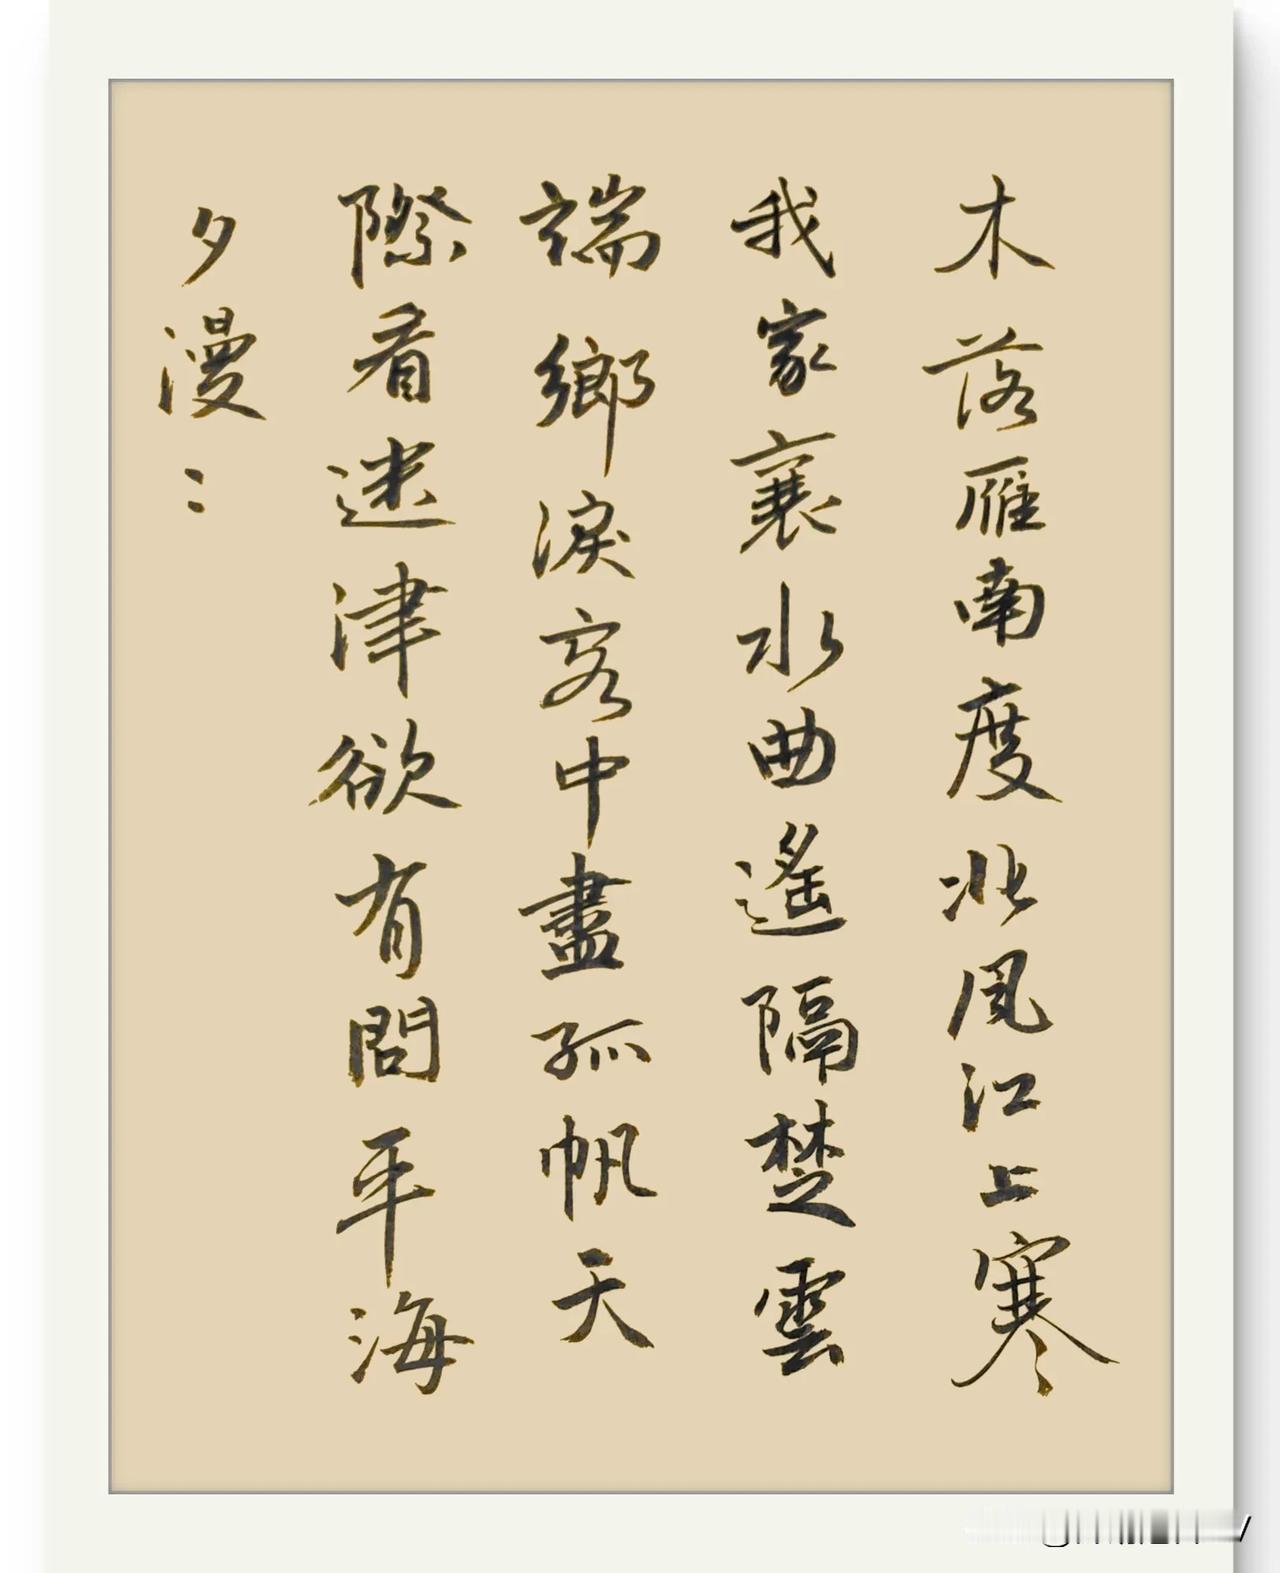 木落雁南度北風江上寒
我家襄水曲遙隔楚雲
端鄉淚客中盡孤帆天
際看迷津欲有問平海
夕漫〻